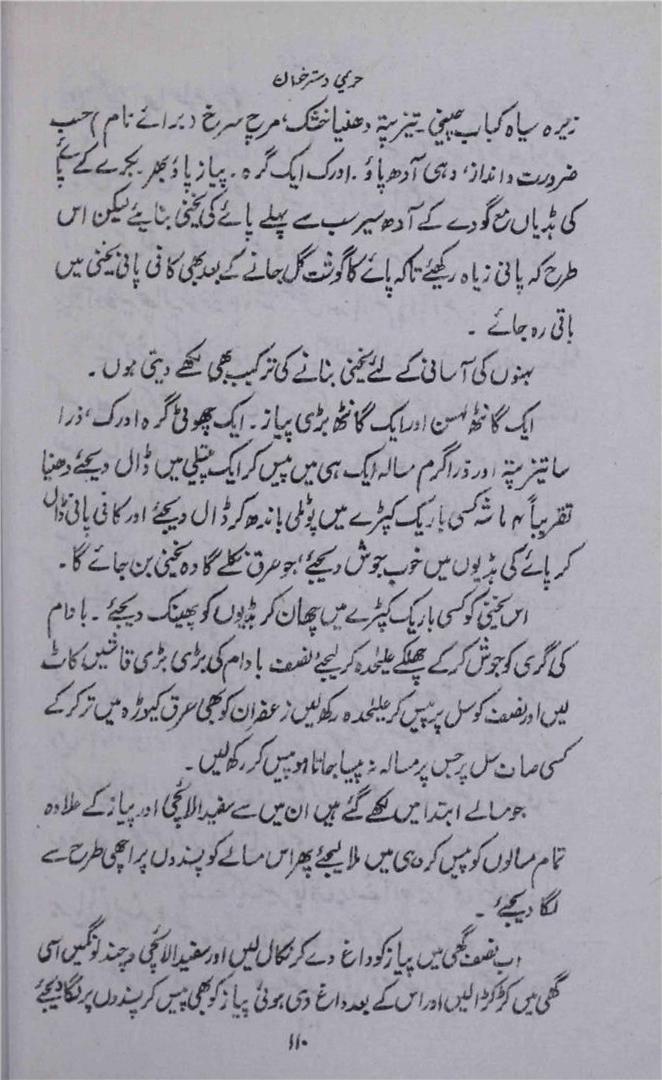 حریمی دسترخوان
زیرہ سیاہ کباب چینی۔ تیز پتہ دھنیا خشک، مرچ سرخ (برائے نام) حسب
ضرورت و انداز، دہی آدھ پاؤ۔ ادرک ایک گرہ۔ پیاز پاؤ بھر بکرے کے پائے
کی ہڈیاں مع گودے کے آدھ سیر سب سے پہلے پائے کی یخنی بنایئے لیکن اس
طرح کہ پانی زیاہ رکھئے تاکہ پائے کا گوشت گل جانے کے بعد بھی کافی پانی یخنی میں
باقی رہ جائے ۔
بہنوں کی آسانی کے لئے یخنی بنانے کی ترکیب بھی لکھے دیتی ہوں۔
ایک گانٹھ لہسن اور ایک گانٹھ بڑی پیاز۔ ایک چھوٹی گرہ ادرک، ذرا
سا تیز پتہ اور ذرا گرم مسالہ ایک ہی میں پیس کر ایک پتیلی میں ڈال دیجئے دھنیا
تقریباً ۴ ماشہ کسی باریک کپڑے میں پوٹلی باندھ کر ڈال دیجئے اور کافی پانی ڈال
کر پائے کی ہڈیوں میں خوب جوش دیجئے، جو عرق نکلے گا وہ یخنی بن جائے گا۔
اس یخنی کو کسی باریک کپڑے میں چھان کر ہڈیوں کو پھینک دیجئے ۔ بادام
کی گری کو جوش کر کے چھلکے علیٰحدہ کر لیجئے نصف بادام کی بڑی بڑی قاشیں کاٹ
لیں اور نصف کو سل پر پیس کر علیٰحدہ رکھ لیں زعفران کو بھی عرق کیوڑہ میں تر کر کے
کسی صاف سل پر جس پر مسالہ نہ پیسا جاتا ہو پیس کر رکھ لیں ۔
جو مسالے ابتدا میں لکھے گئے ہیں ان میں سے سفید الائچی اور پیاز کے علاوہ
تمام مسالوں کو پیس کر دہی میں ملا لیجئے پھر اس مسالے کو پسندوں پر اچھی طرح سے
لگا دیجئے ۔
اب نصف گھی میں پیاز کو داغ دے کر نکال لیں اور سفید الائچی و چند لونگیں اسی
گھی میں کڑکڑا لیں اور اس کے بعد داغ دی ہوئی پیاز کو بھی پیس کر پسندوں پر لگا دیجئے
۱۱۰